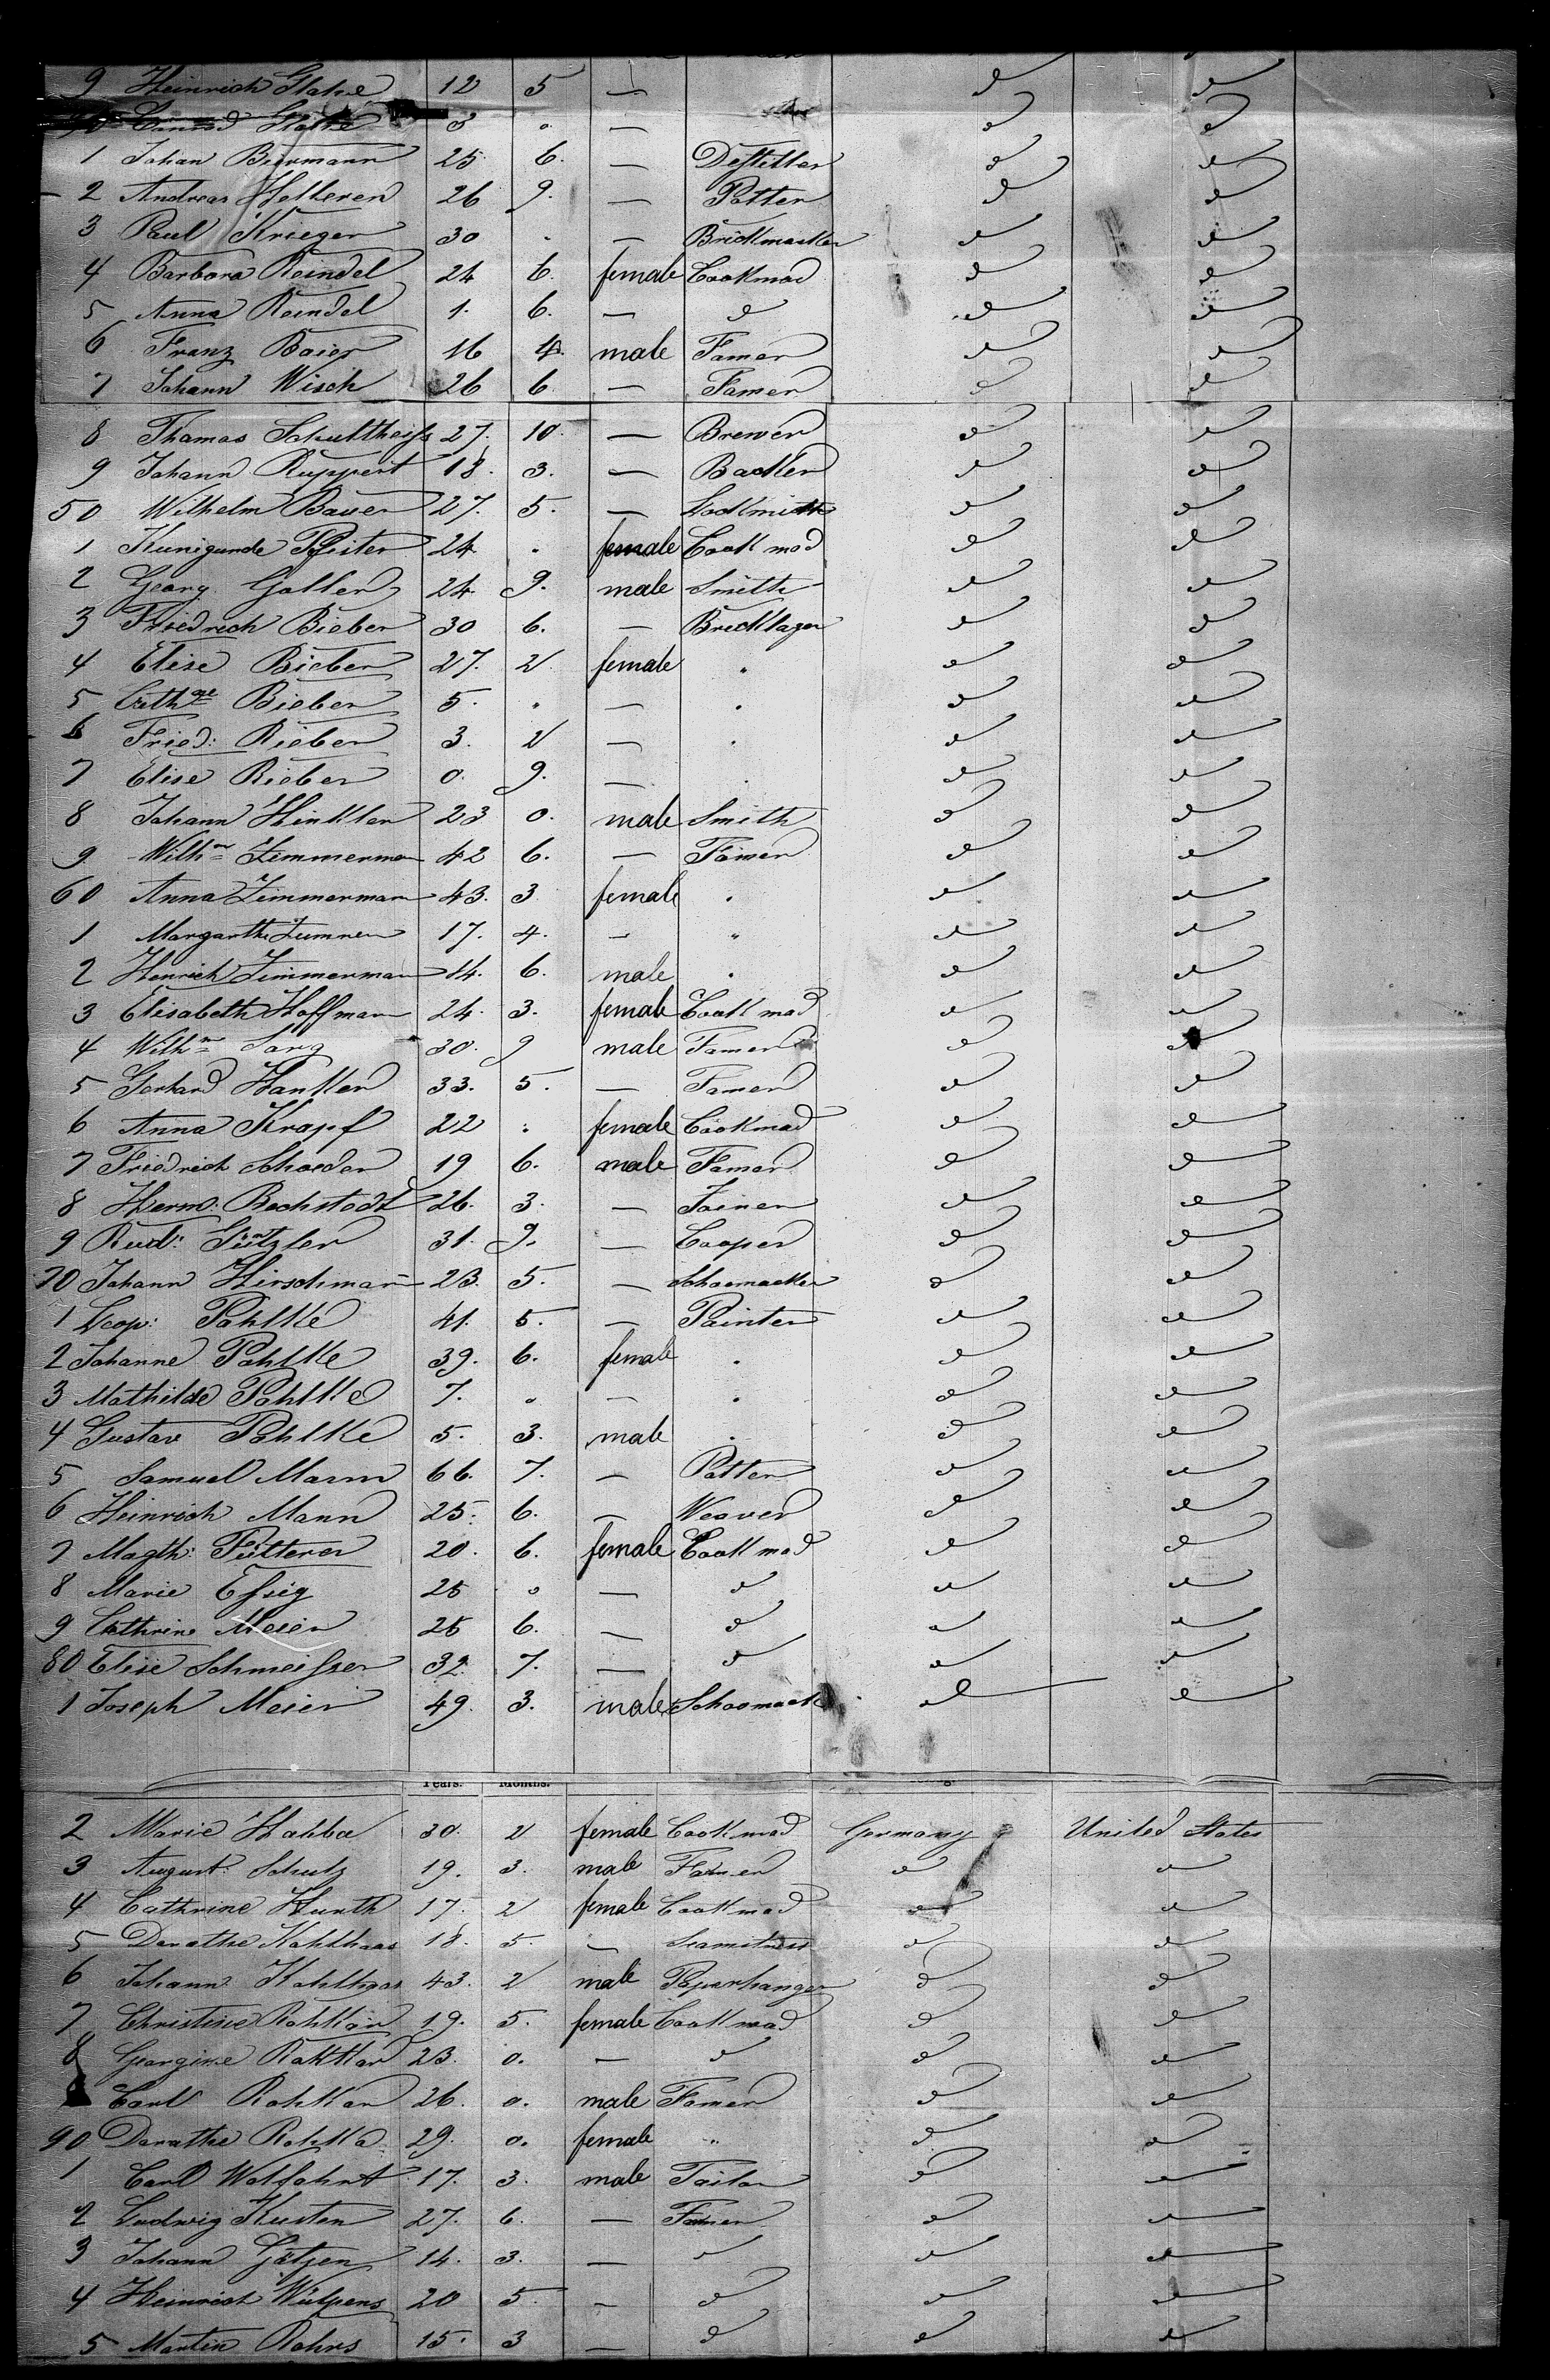 9 Heinrich Stahe 12 5 — do do
40 Stahe 3 " — do do
1 Johan Biermann 25. 6. — Destiller do do
2 Andreas Helleren 26 9. — Potter do do
3 Paul Krieger 30 " — Brickmacker do do
4 Barbara Reindel 24 6. female Cookmad do do
5 Anna Reindel 1. 6. — do do do
6 Franz Baier 16 4. male Famer do do
7 Johann Wisch 26 6 — Famer do do
8 Thamas Schultheiss 27. 10. — Brewer do do
9 Johann Ruppert 18. 3. — Backer do do
50 Wilhelm Bauer 27. 5. — Lockmith do do
1 Kunigunde Pfister 24 " female Cook mad do do
2 Georg Galler 24 9. male Smith do do
3 Friedrich Bieber 30 6. — Bricklager do do
4 Elise Bieber 27. 2 female " do do
5 Cathne Bieber 5. " — " do do
6 Fried: Bieber 3. 2 — " do do
7 Elise Bieber 0. 9. — " do do
8 Johann Hinkler 23 0. male Smith do do
9 Wilhm Zimmerman 42 6. — Famer do do
60 Anna Zimmerman 43. 3 female " do do
1 Margarthe Zumnen 17. 4. — " do do
2 Henrich Zimmerman 14. 6. male " do do
3 Elisabeth Hoffman 24. 3. female Cook mad do do
4 Wilhm Sarg 30. 9 male Famer do do
5 Gerhard Hanker 33. 5. — Famer do do
6 Anna Krapf 22 " female Cookmad do do
7 Friedrich Schoeder 19 6. male Famer do do
8 Herm: Bechstadt 26. 3. — Joiner do do
9 Rud: Gützler 31. 9. — Cooper do do
70 Johann Hirschman 23. 5. — Schoemacker do do
1 Leop: Pahlke 41. 5. — Painter do do
2 Johanne Pahlke 39. 6. female " do do
3 Mathilde Pahlke 7. " — " do do
4 Gustav Pahlke 5. 3. male " do do
5 Samuel Mann 66. 7. — Potter do do
6 Heinrich Mann 25. 6. — Weaver do do
7 Magth: Fütterer 20. 6. female Cook mad do do
8 Marie Essig 25 " — do do do
9 Cathrine Meier 25 6. — do do do
80 Elise Schmeisser 32. 7. — do do do
1 Joseph Meier 49. 3. male Schoomack do do
Years. Months.
2 Marie Habba 30. 2 female Cook mad Germany United States
3 August: Schulz 19. 3. male Famer do do
4 Cathrine Hurth 17. 2 female Cook mad do do
5 Darathe Kahlhaas 18. 5. — Seamstress do do
6 Johann Kahlhaas 43. 2 male Paperhanger do do
7 Christine Rohkar 19. 5. female Cook mad do do
8 Georgine Rohkar 23. 0. — do do do
Carl Rohkar 26. 0. male Famer do do
90 Darathe Rohka 29. 0. female " do do
1 Carl Walfahrt 17. 3. male Tailor do do
2 Ludwig Kusten 27. 6. — Famer do do
3 Johann Götzen 14. 3. — do do do
4 Heinrich Wülpens 20 5. — do do do
5 Martin Rohrs 15. 3 — do do do